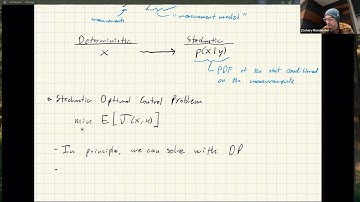 Zachary Manchester
measurements
"measurement model"
Deterministic
Stochastic
x
p(x|y)
PDF of the state conditioned
on the measurements
Stochastic Optimal Control Problem
min E[J(x,u)]
u
- In principle, we can solve with DP
-